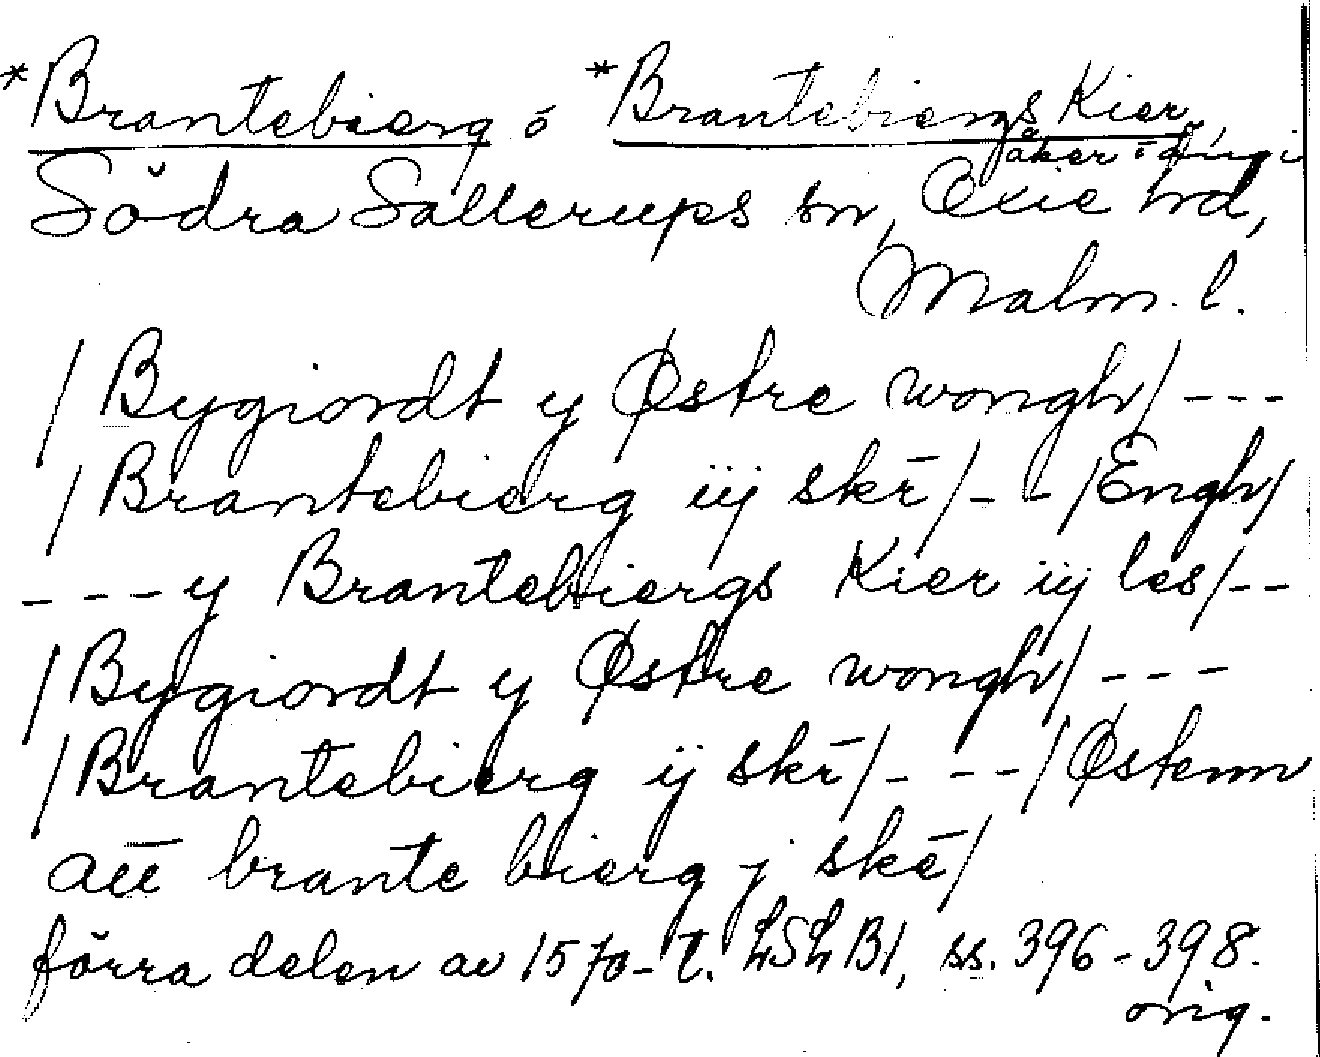 *Brantebierg o *Brantebiergs Kier,
åker- o äng i
Södra Sallerups sn, Oxie hd,
Malm. l.
/Bygiordt y Østre wongh/ ---
/Brantebierg iij skē/ - - /Engh/
--- y Brantebiergs Kier iij les/--
/Bygiordt y Østre wongh/ ---
/Brantebierg ij skē/- -- /Østenn
att brante bierg j skē/
förra delen av 1570-t. LSLB1, ss. 396-398.
orig.